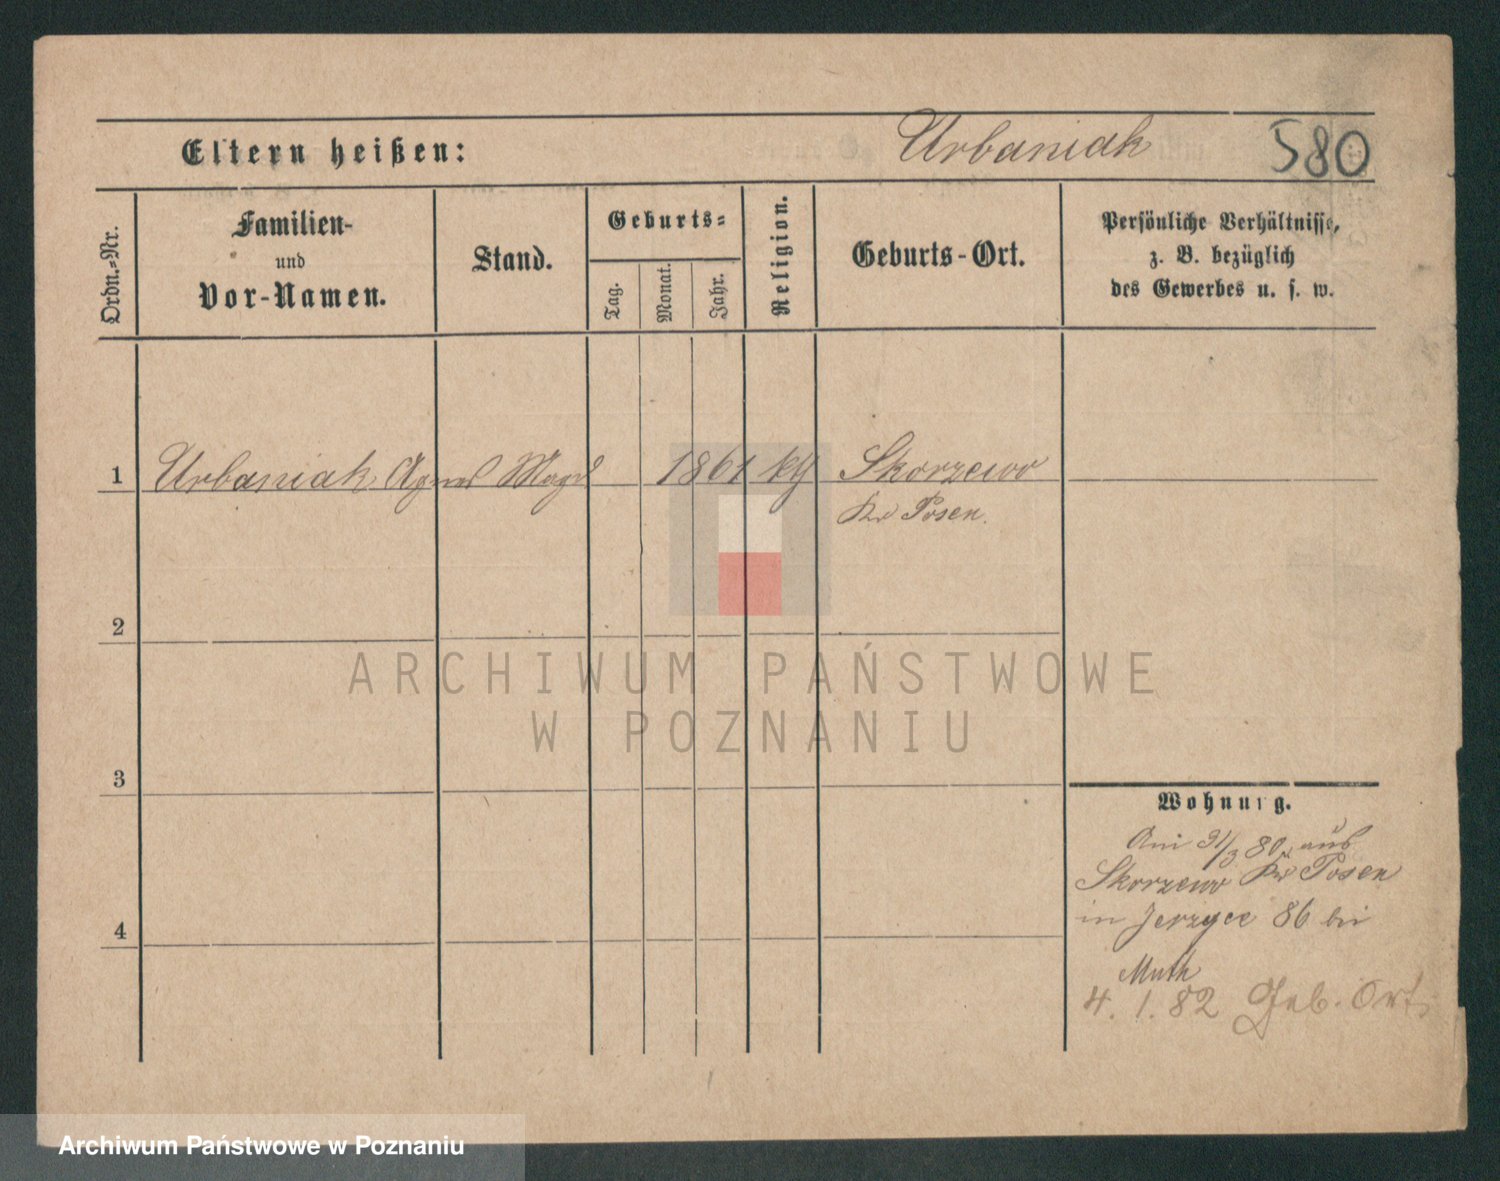 Eltern heißen:
Urbaniak
580
Ordn.-Nr.
Familien-
und
Vor-Namen.
Stand.
Geburts-
Tag.
Monat.
Jahr.
Religion.
Geburts-Ort.
Persönliche Verhältnisse,
z. B. bezüglich
des Gewerbes u. s. w.
1 Urbaniak Agnes Magd 1861 Skorzewo
Kr Posen.
2
ARCHIWUM PAŃSTWOWE
W POZNANIU
3
Wohnung.
Am 31/3 80, aus
Skorzewo Kr Posen
in Jerzyce 86 bei
4
Muth
4. 1. 82 Geb. Ort
Archiwum Państwowe w Poznaniu